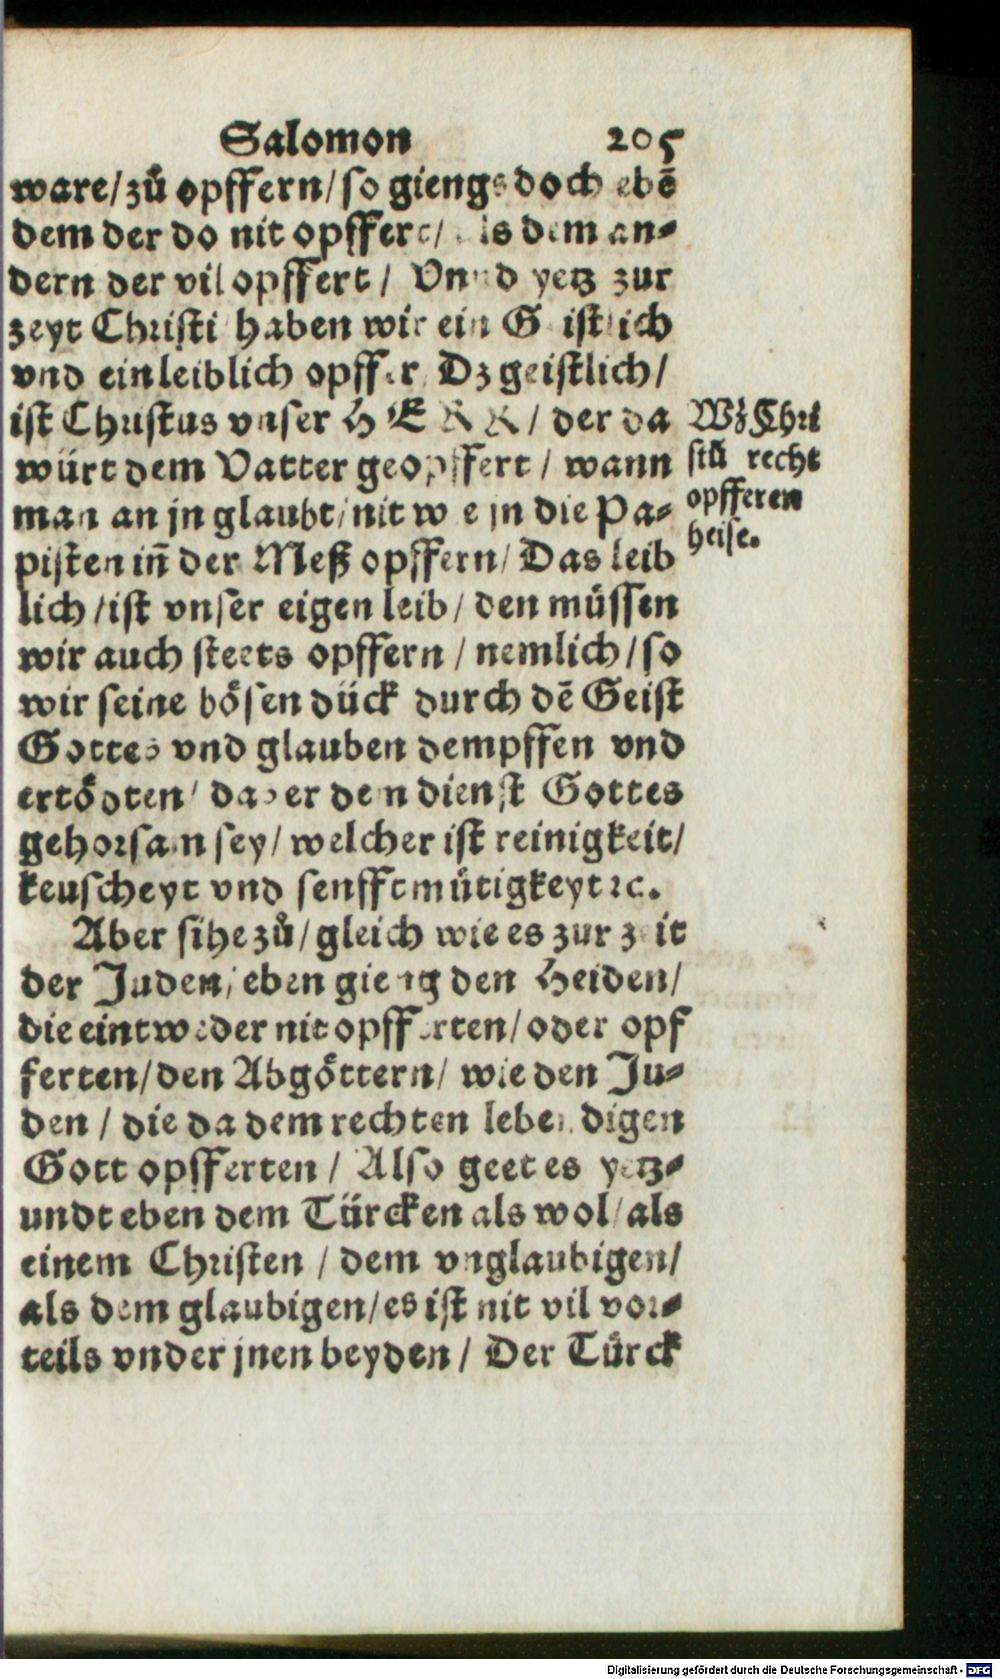 Salomon 205
ware/zů opffern/so giengs doch ebẽ
dem der do nit opffert/ als dem an⸗
dern der vil opffert / Vnnd yetz zur
zeyt Christi haben wir ein Geistlich
vnd ein leiblich opffer Dz geistlich/
ist Christus vnser HERR/ der da
würt dem Vatter geopffert / wann
man an jn glaubt/nit wie jn die Pa⸗
pisten iñ der Meß opffern/ Das leib
lich/ist vnser eigen leib/ den müssen
wir auch steets opffern / nemlich/so
wir seine bösen dück durch dẽ Geist
Gottes vnd glauben dempffen vnd
ertödten/ da er dem dienst Gottes
gehorsam sey/ welcher ist reinigkeit/
keuscheyt vnd senfftmütigkeyt ꝛc.
Wz Chri
stũ recht
opfferen
heise.
Aber sihe zů/gleich wie es zur zeit
der Juden/ eben gieng den Heiden/
die eintweder nit opfferten/oder opf
ferten/den Abgöttern/ wie den Ju⸗
den / die da dem rechten lebendigen
Gott opfferten / Also geet es yetz⸗
undt eben dem Türcken als wol/als
einem Christen / dem vnglaubigen/
als dem glaubigen/es ist nit vil vor⸗
teils vnder jnen beyden / Der Türck
Digitalisierung gefördert durch die Deutsche Forschungsgemeinschaft - DFG